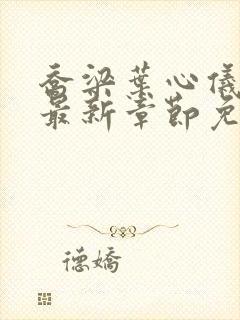 乔梁叶心仪
最新章节免
德娇